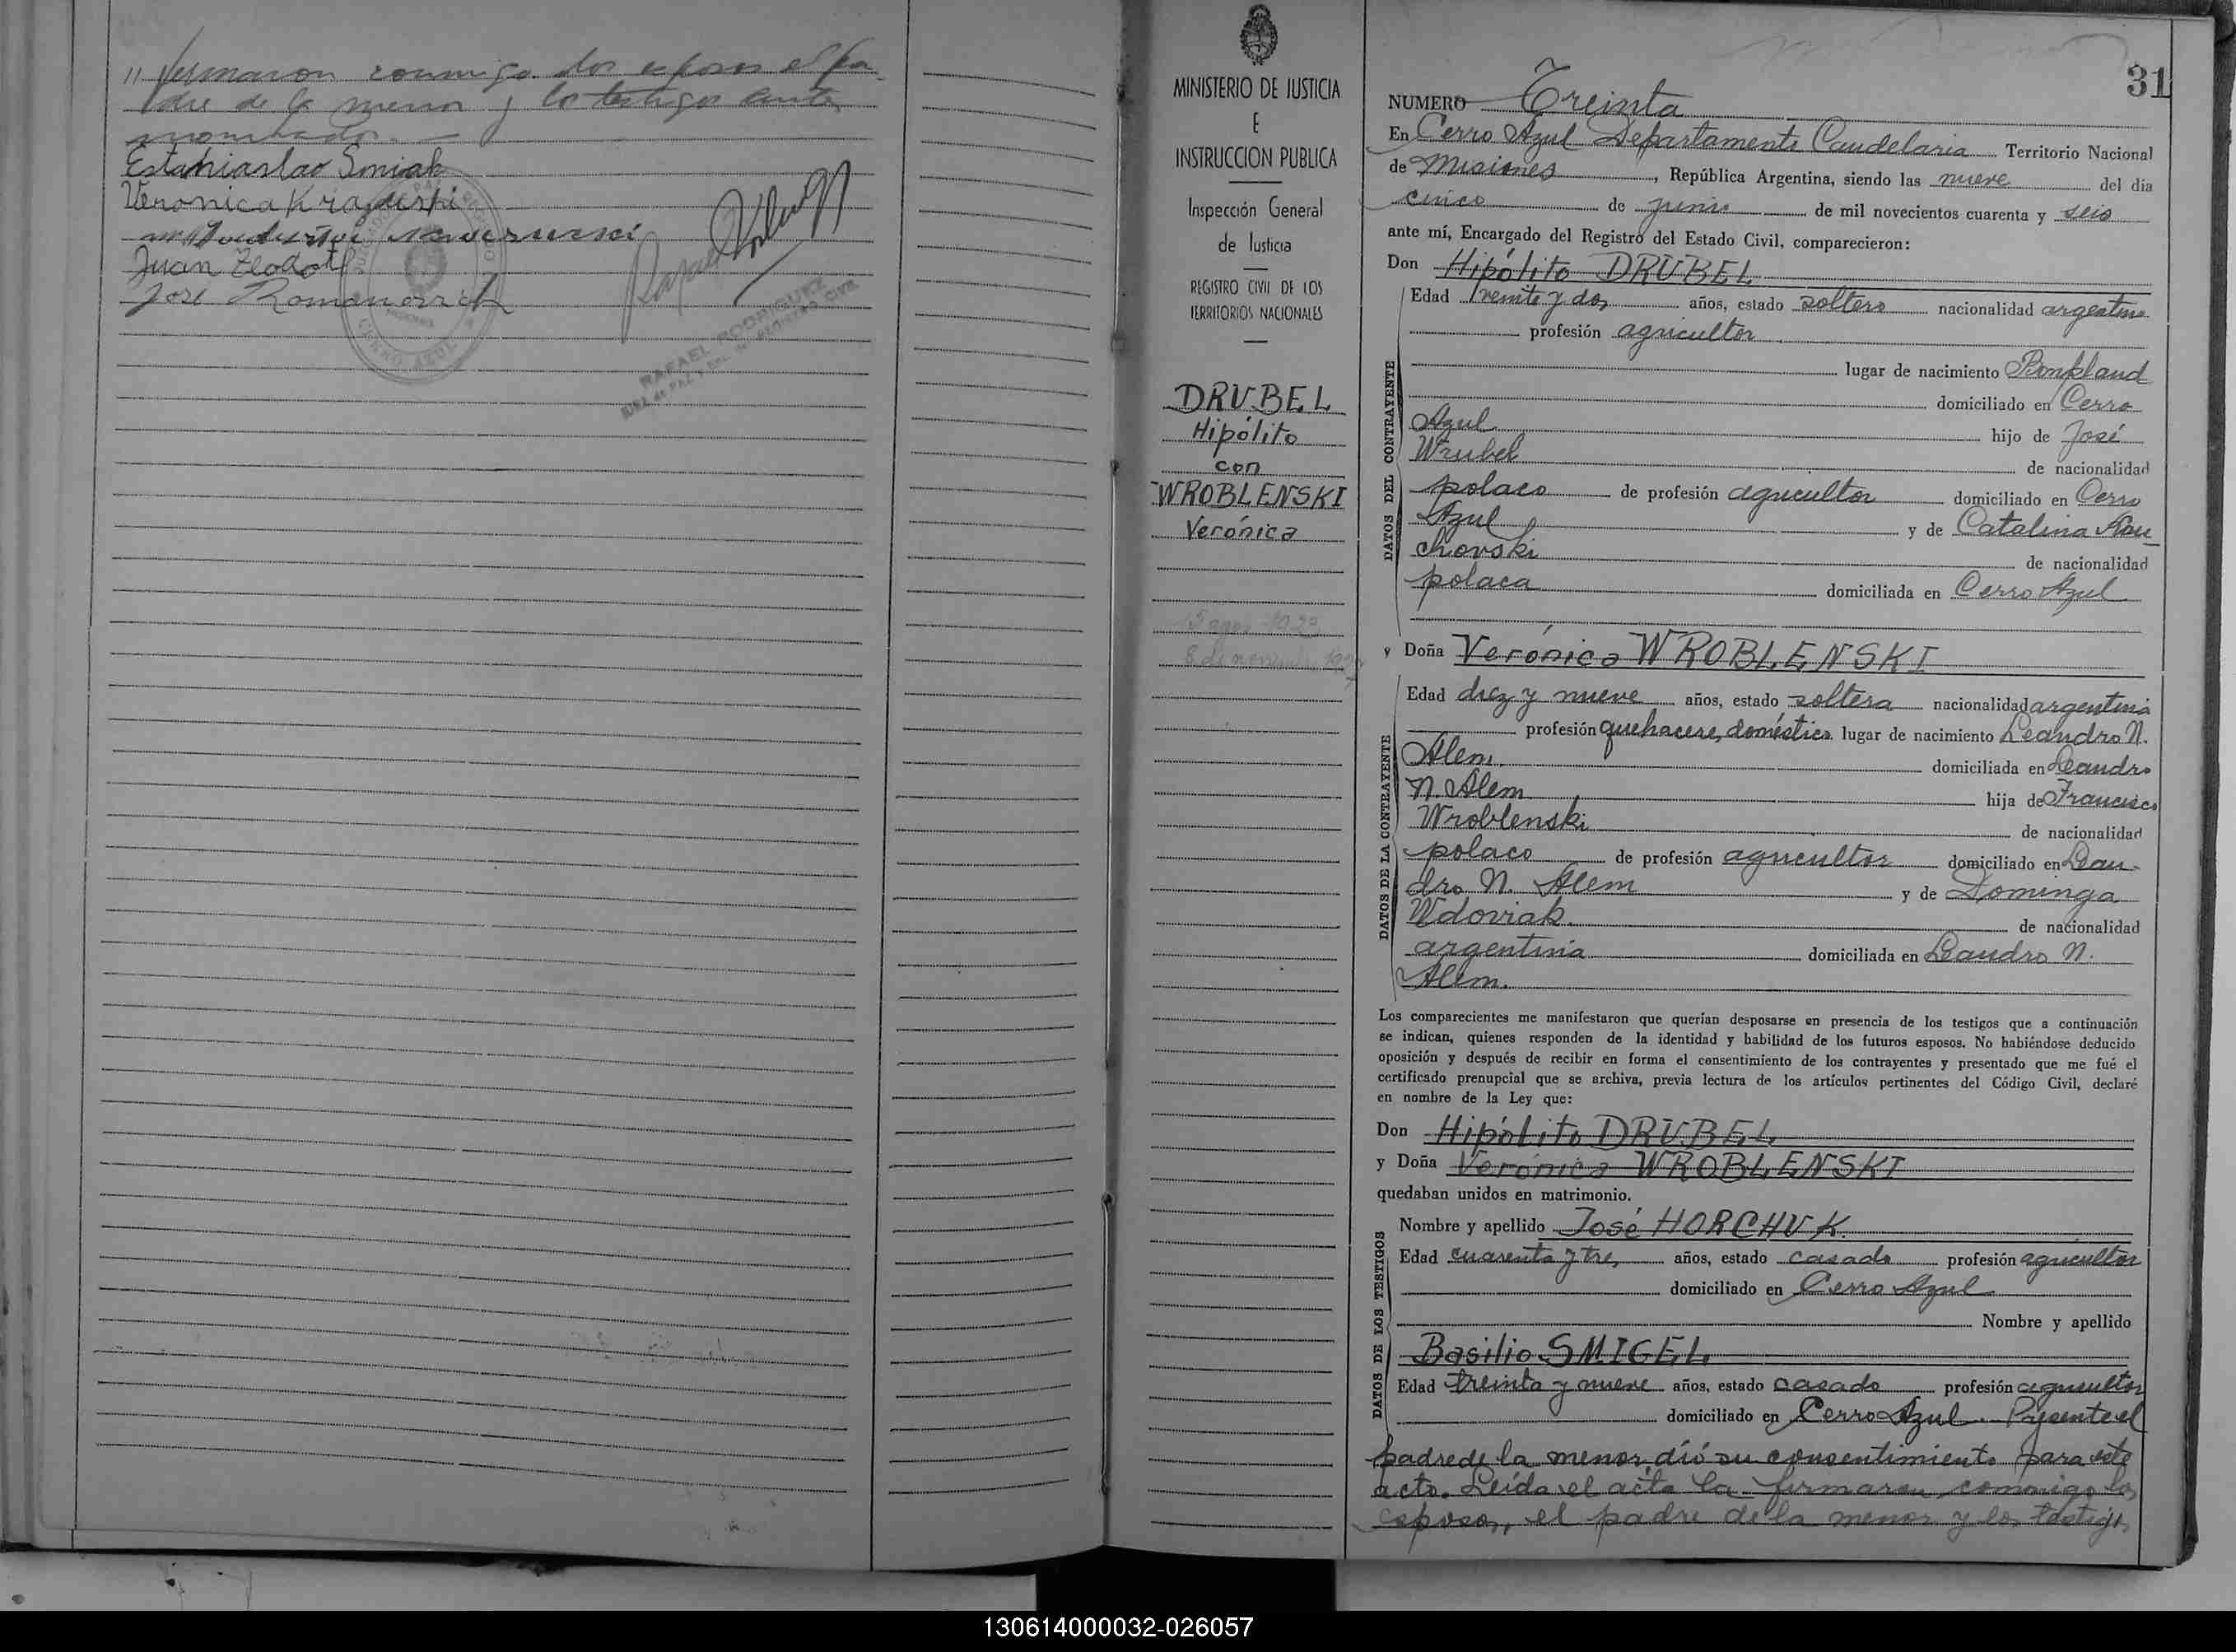 // firmaron conmigo los esposos el pa-
dre de la menor y los testigos ante
nombrados.—
Estaniaslao Smiak
Veronica K
Juan Zlokot
José Romanozzik
Rafael
RAFAEL RODRIGUEZ
JUEZ de PAZ y ENC. del REGISTRO CIVIL
CERRO AZUL
MINISTERIO DE JUSTICIA
E
INSTRUCCION PUBLICA
Inspección General
de Justicia
REGISTRO CIVIL DE LOS
TERRITORIOS NACIONALES
DRUBEL
Hipólito
con
WROBLENSKI
Verónica
5 agos 1923
8 de noviembre 1926
31
NUMERO Treinta
En Cerro Azul Departamento Candelaria Territorio Nacional
de Misiones, República Argentina, siendo las nueve del día
cinco de junio de mil novecientos cuarenta y seis
ante mí, Encargado del Registro del Estado Civil, comparecieron:
Don Hipólito DRUBEL
DATOS DEL CONTRAYENTE
Edad veinte y dos años, estado soltero nacionalidad argentino
profesión agricultor
lugar de nacimiento Bonpland
domiciliado en Cerro
Azul hijo de José
Wrubel de nacionalidad
polaco de profesión agricultor domiciliado en Cerro
Azul y de Catalina
chovski de nacionalidad
polaca domiciliada en Cerro Azul
y Doña Verónica WROBLENSKI
DATOS DE LA CONTRAYENTE
Edad diez y nueve años, estado soltera nacionalidad argentina
profesión quehaceres domésticos lugar de nacimiento Leandro N.
Alem. domiciliada en Leandro
N. Alem hija de Francisco
Wroblenski de nacionalidad
polaco de profesión agricultor domiciliado en Lean-
dro N. Alem y de Dominga
Wdoviak. de nacionalidad
argentina domiciliada en Leandro N.
Alem.
Los comparecientes me manifestaron que querían desposarse en presencia de los testigos que a continuación
se indican, quienes responden de la identidad y habilidad de los futuros esposos. No habiéndose deducido
oposición y después de recibir en forma el consentimiento de los contrayentes y presentado que me fué el
certificado prenupcial que se archiva, previa lectura de los artículos pertinentes del Código Civil, declaré
en nombre de la Ley que:
Don Hipólito DRUBEL
y Doña Verónica WROBLENSKI
quedaban unidos en matrimonio.
DATOS DE LOS TESTIGOS
Nombre y apellido José HORCHUK.
Edad cuarenta y tres años, estado casado profesión agricultor
domiciliado en Cerro Azul
Nombre y apellido
Basilio SMIGEL
Edad treinta y nueve años, estado casado profesión agricultor
domiciliado en Cerro Azul. Presente el
padre de la menor dió su consentimiento para este
acto. Leída el acta la firmaron conmigo los
esposos, el padre de la menor y los testigos
130614000032-026057